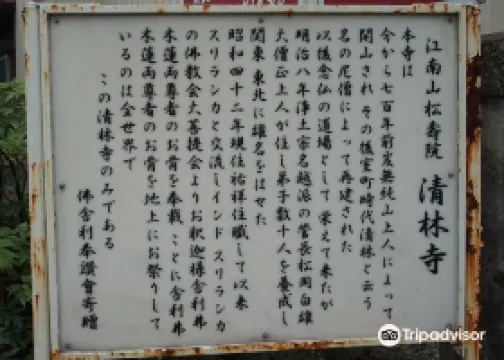 江南山松壽院 清林寺
本寺は
今から七百年前虎無純山上人によって
開山され その後室町時代清林と云う
名の尼僧によって再建された
以後念仏の道場として栄えて来たが
明治八年浄土宗名越派の管長松岡白雄
大僧正上人が住し弟子数十人を養成し
関東 東北に雄名をはせた
昭和四十二年現住祐祥住職して以来
スリランカと交流しインド スリランカ
の佛教会大菩提会よりお釈迦様舎利弗
木蓮両尊者のお骨を奉載 ことに舎利弗
木蓮両尊者のお骨を地上にお祭りして
いるのは全世界で
この清林寺のみである
佛舎利奉讃會寄贈
Tripadvisor